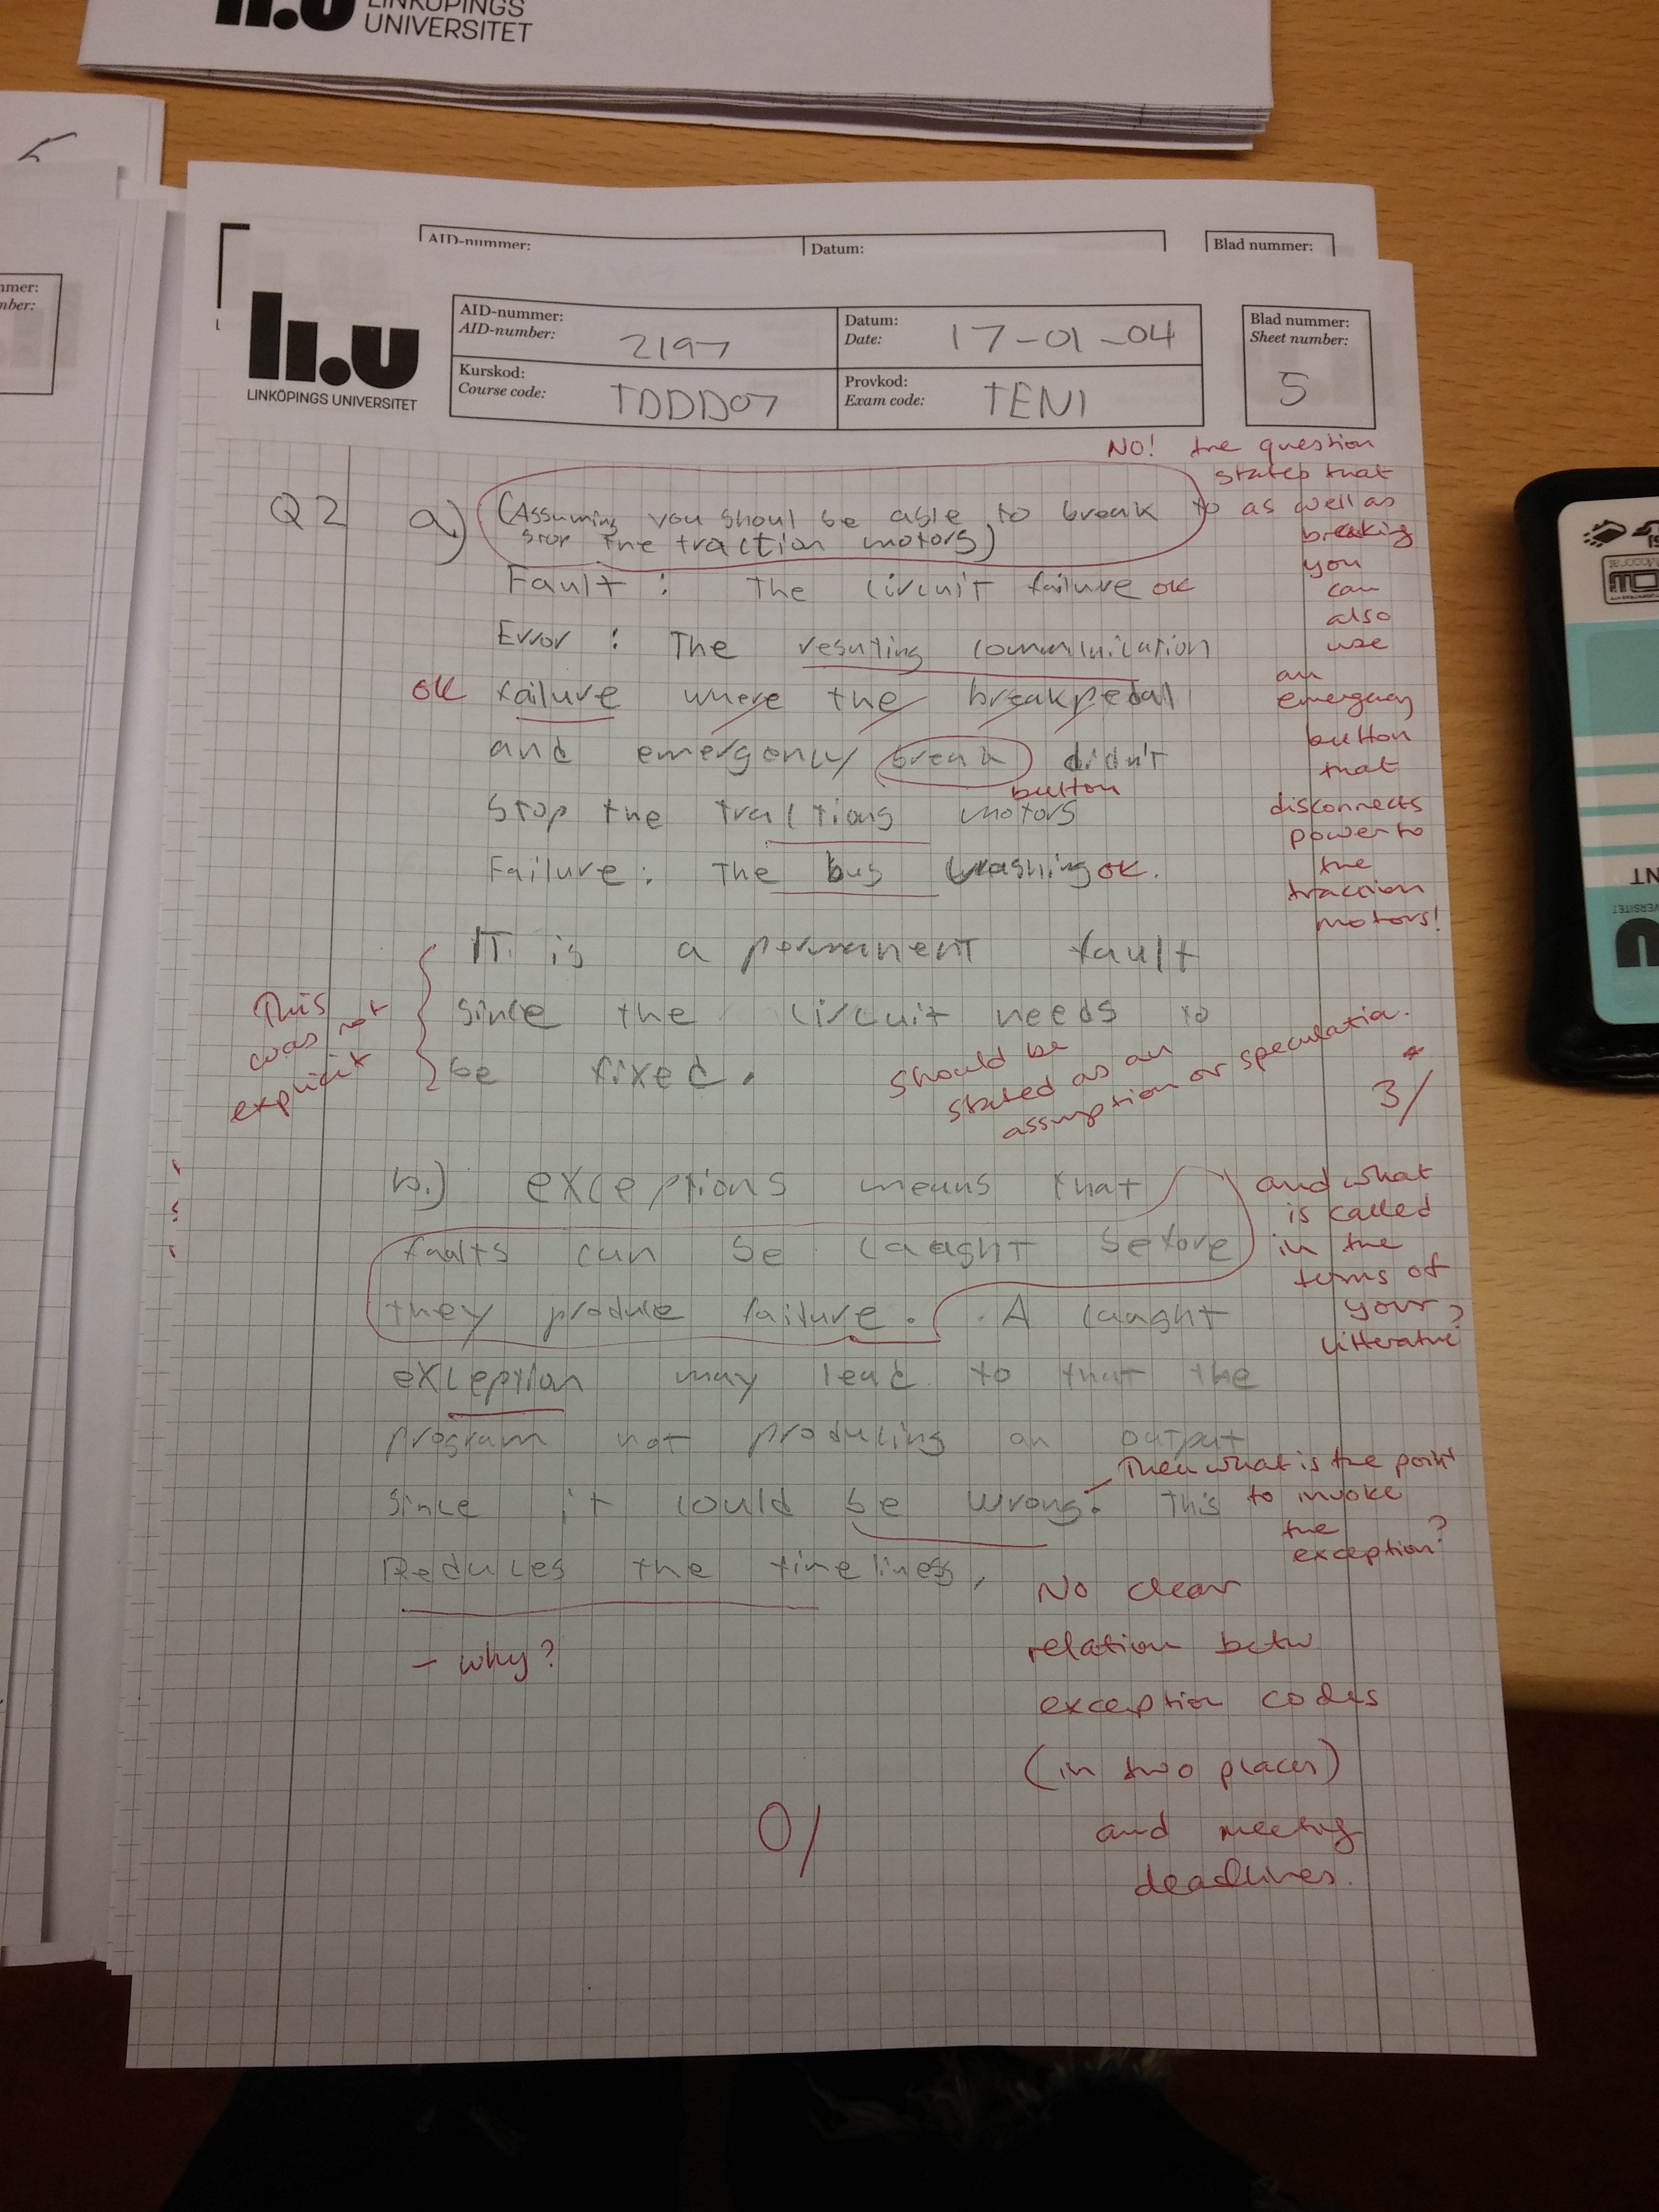 LINKÖPINGS
UNIVERSITET
AID-nummer:
Datum:
Blad nummer:
LINKÖPINGS UNIVERSITET
AID-nummer:
AID-number:
2197
Datum:
Date:
17-01-04
Blad nummer:
Sheet number:
5
Kurskod:
Course code:
TDDD07
Provkod:
Exam code:
TEN1
NO! the question
states that
to as well as
breaking
you
can
also
use
an
emergency
button
that
disconnects
power to
the
traction
motors!
Q2 a) (Assuming you shoul be able to break
stop the traction motors)
Fault: The circuit failure OK
Error: The resulting communication
OK failure where the breakpedal
and emergency break didn't
button
Stop the tractions motors
Failure: The bus crashing OK.
IT is a permanent fault
since the circuit needs to
be fixed.
This
was not
explicit
should be
stated as an
assumption or speculation.
3/
b.) exceptions means that
faults can be caught before
they produce failure. A caught
exception may lead to that the
program not producing an output
since it could be wrong. This
Reduces the timeliness,
and what
is called
in the
terms of
your
litterature?
Then what is the point
to invoke
the
exception?
- why?
No clear
relation betw
exception codes
(in two places)
and meeting
deadlines.
0/